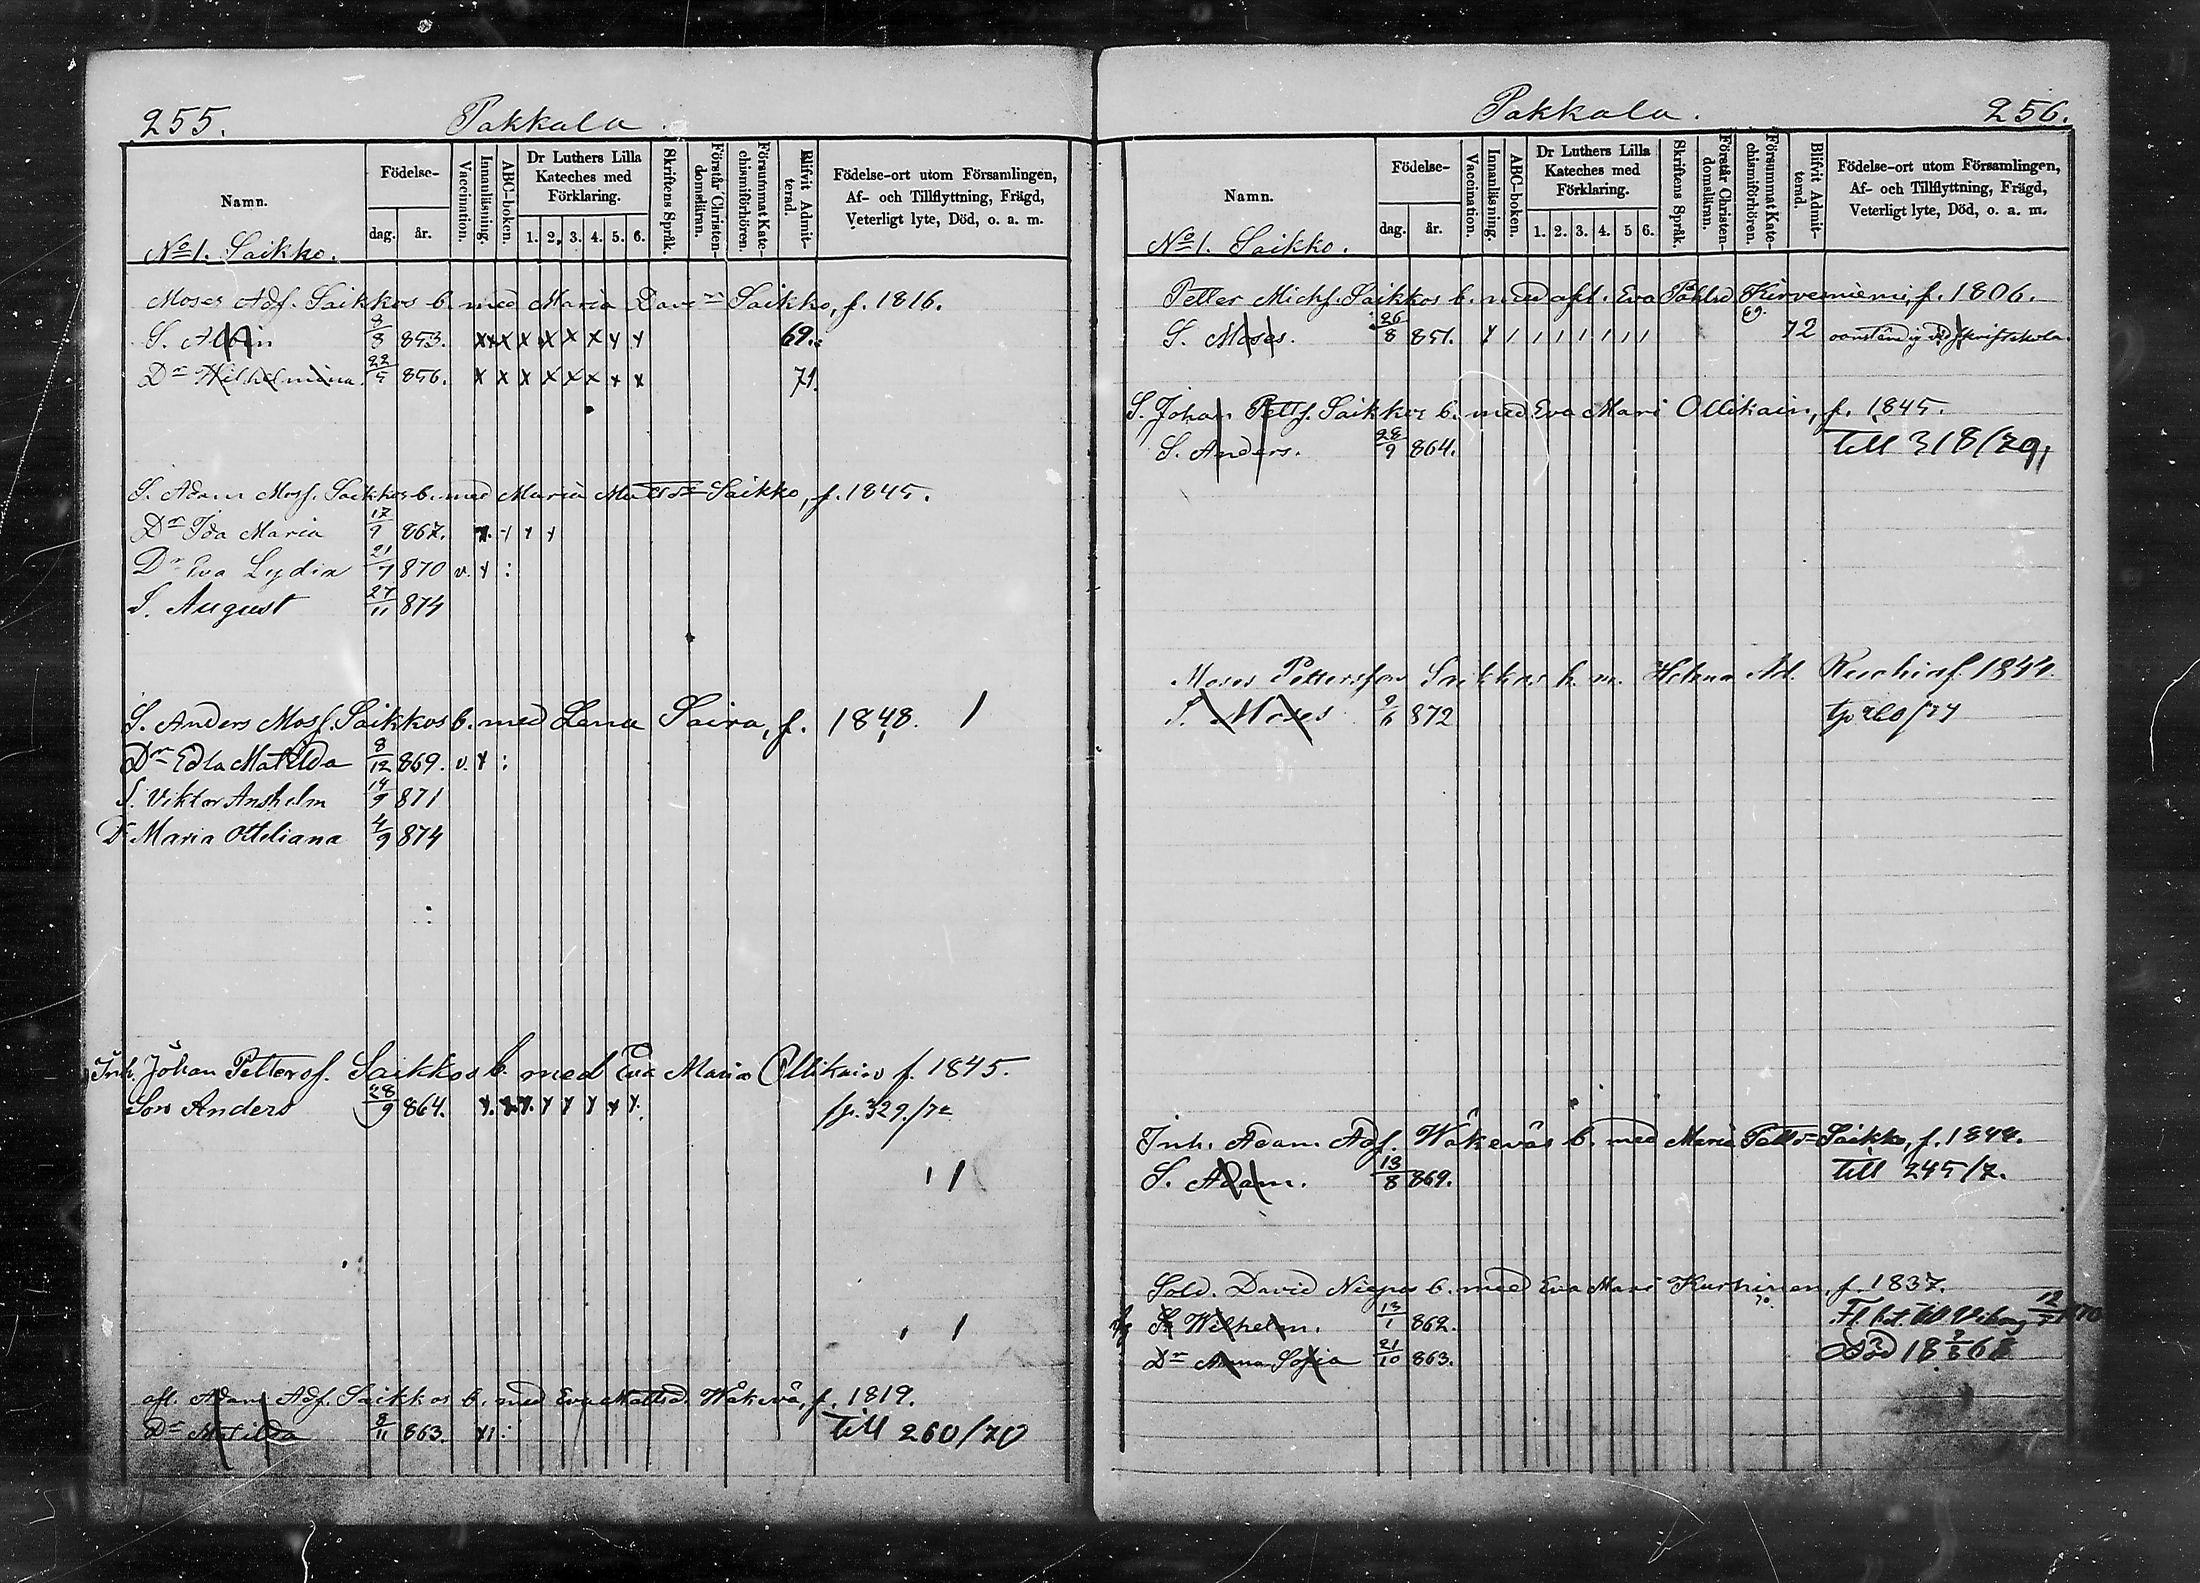 255.
Pakkala.
Namn.
Födelse-
dag.
år.
Vaccination.
Innanläsning.
ABC-boken.
Dr Luthers Lilla
Kateches med
Förklaring.
1. 2. 3. 4. 5. 6.
Skriftens Språk.
Förstår Christen-
domsläran.
Försummat Kate-
chismiförhören.
Blifvit Admit-
terad.
Födelse-ort utom Församlingen,
Af- och Tillflyttning, Frägd,
Veterligt lyte, Död, o. a. m.
No 1. Saikko.
Moses Adf. Saikkos b. med Maria Savolr Saikko, f. 1816.
S. Albin 8/8 853. x x x x x x x x 69.
Dr Wilhelmina 22/5 856. x x x x x x x x 71.
S. Adam Mosf. Saikkos b. med Maria Mattsdr Saikko, f. 1845.
Dr Ida Maria 17/9 867.
Dr Eva Lydia 21/7 870 v. x :
S. August 27/11 874
S. Anders Mosf. Saikkos b. med Lena Saira, f. 1848.
Dr Edla Matilda 8/12 869. v. x :
S. Viktor Anshelm 14/9 871
Dr Maria Otteliana 4/9 874
Inh. Johan Pettersf. Saikkos b. med Eva Maria Ollikain f. 1845.
Son Anders 28/9 864. fr. 329./72
afl. Adam Adf. Saikkos b. med Eva Mattsd. Wäkevä, f. 1819.
Dr Matilda 8/11 863. till 260/70
Pakkala.
256.
Namn.
Födelse-
dag.
år.
Vaccination.
Innanläsning.
ABC-boken.
Dr Luthers Lilla
Kateches med
Förklaring.
1. 2. 3. 4. 5 6.
Skriftens Språk.
Förstår Christen-
domsläran.
Försummat Kate-
chismiförhören.
Blifvit Admit-
terad.
Födelse-ort utom Församlingen,
Af- och Tillflyttning, Frägd,
Veterligt lyte, Död, o. a. m.
No 1. Saikko.
Petter Michf. Saikkos b. med afl. Eva Påhlsd Kirvesniemi, f. 1806.
S. Moses. 26/8 851. 69. 72 skriftskola.
S. Johan Pettf. Saikkos b. med Eva Mari Ollikain, f. 1845.
S. Anders. 28/9 864. till 318/79
Moses Pettersson Saikkos h. m. Helena Ad. f. 1844.
S. Moses 9/6 872
Inh. Adam Adf. Wäkeväs b. med Maria Pettdr Saikko, f. 1848.
S. Adam. 13/8 869. till 245/7.
Sold. David Niepos b. med Eva Mari Kurhinen, f. 1837.
S. Wilhelm. 13/1 862. 70.
Dr Anna Sofia 21/10 863. Död 18 2/8 68